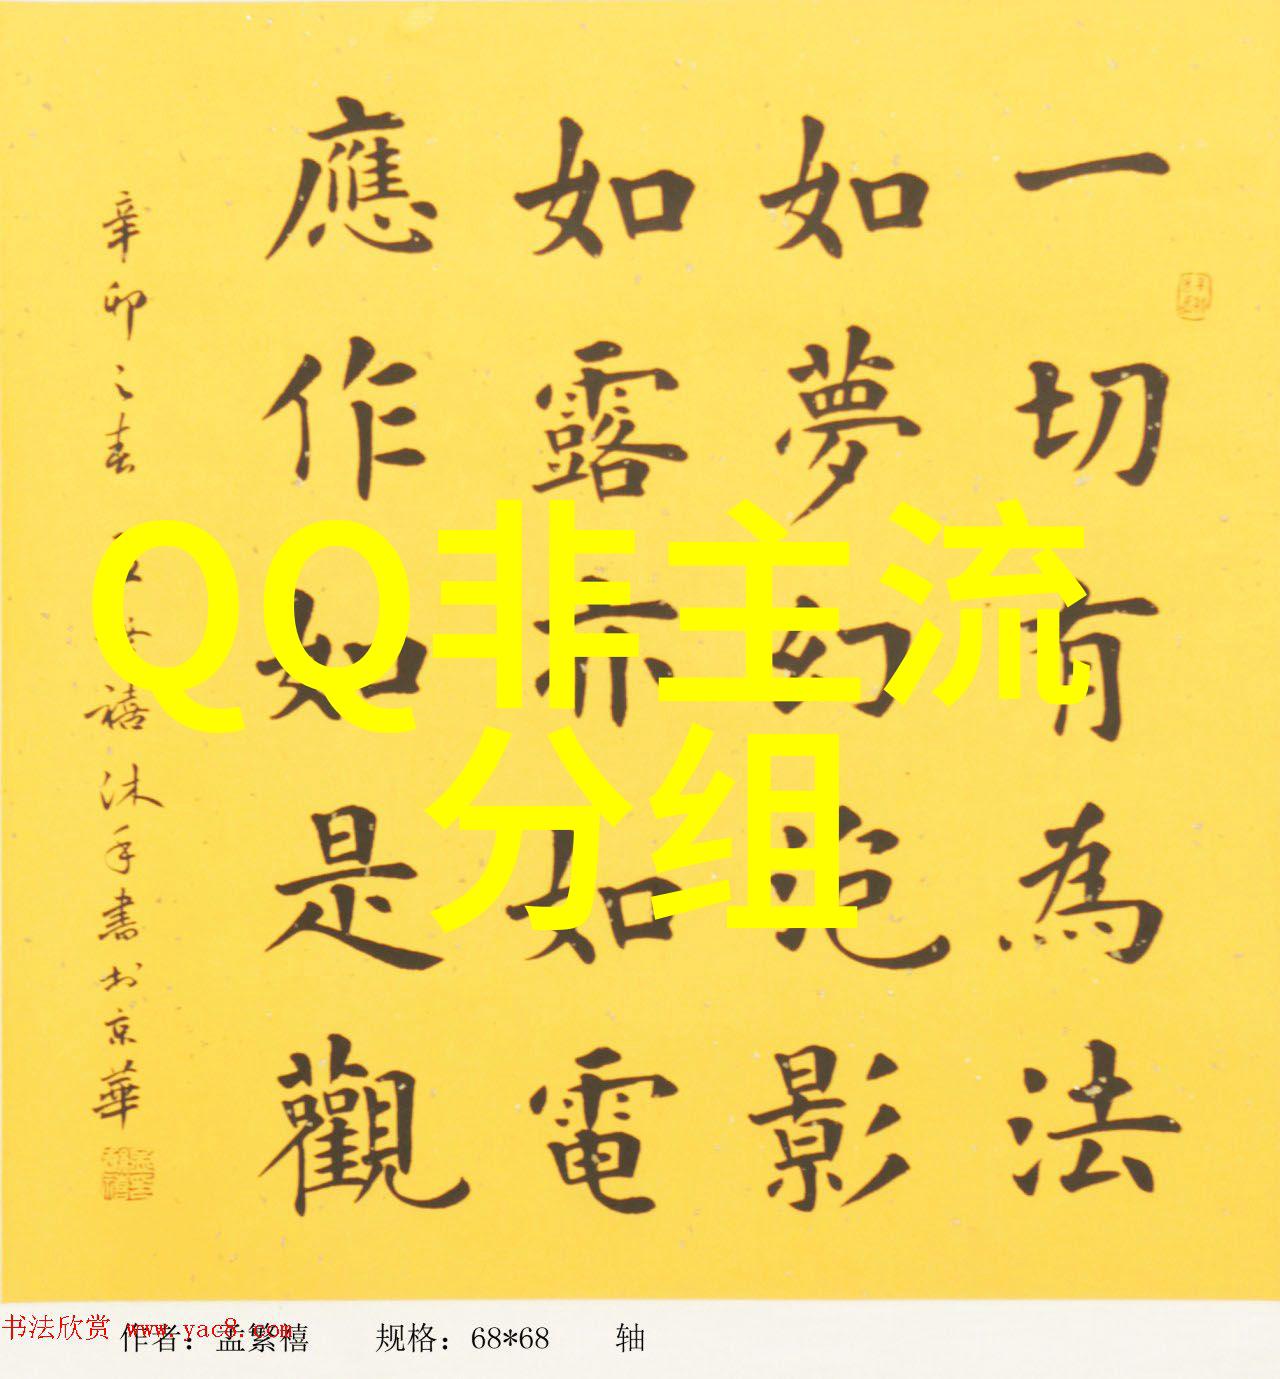 一切有為法
如夢幻泡影
如露亦如電
應作如是觀
辛卯之春
禧沐手書於京華
QQ非主流
分组
书法欣赏 www.yac8.com
作者：孟繁禧 规格：68*68 轴